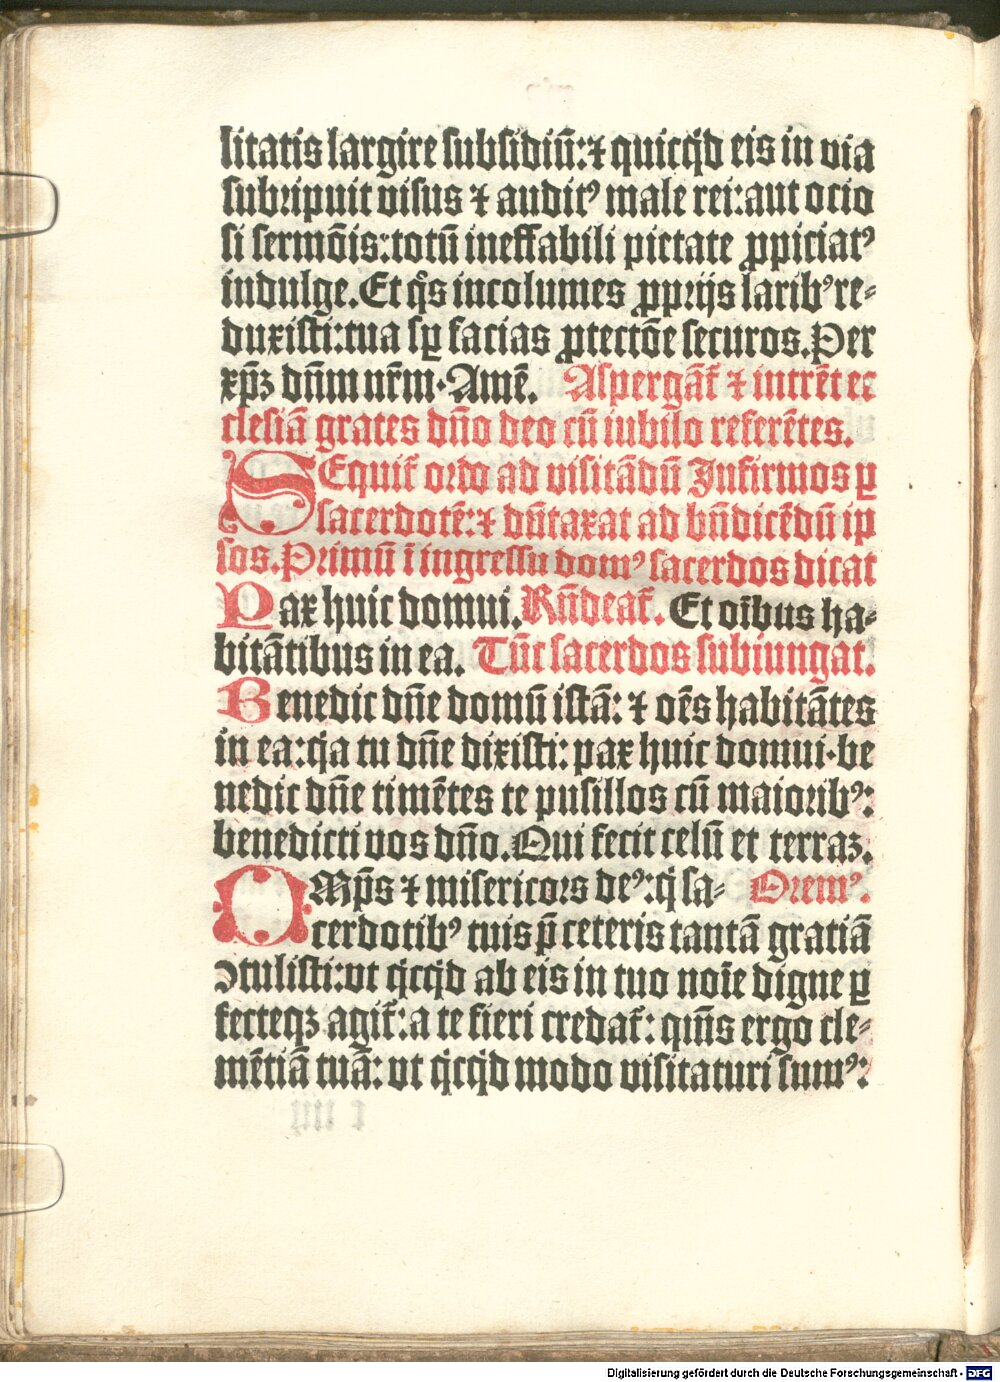 litatis largire subsidiū:⁊ quicq̇d eis in via
subripuit visus ⁊ auditꝰ male rei:aut ocio
si sermōis:totū ineffabili pietate ꝓpiciatꝰ
indulge.Et q̄s incolumes ꝓprijs laribꝰ re⸗
duxisti:tua sꝑ facias ꝓtectōe securos.Per
xp̄ꝫ dn̄m nr̄m.Amē. Aspergāt᷑ ⁊ intrēt ec
clesiā grates dn̄o deo cū iubilo referētes.
SEquit᷑ ordo ad visitādū Infirmos ꝑ
sacerdotē:⁊ dūtaxat ad bn̄dicēdū ip
sos.Primū ī ingressu domꝰ sacerdos dicat
Pax huic domui.Rn̄deat᷑. Et oībus ha⸗
bitātibus in ea. Tūc sacerdos subiungat.
Benedic dn̄e domū istā: ⁊ oēs habitātes
in ea:q̇a tu dn̄e dixisti: pax huic domui.be
nedic dn̄e timētes te pusillos cū maioribꝰ:
benedicti vos dn̄o.Qui fecit celū et terraꝫ.
OMp̄s ⁊ misericors deꝰ:q̇ sa⸗ Oremꝰ.
cerdotibꝰ tuis p̄ ceteris tantā gratiā
ꝯtulisti:vt q̇cq̇d ab eis in tuo noīe digne ꝑ
fecteqꝫ agit᷑:a te fieri credat᷑: q̄m̄s ergo cle⸗
mētiā tuā: vt q̇cq̇d modo visitaturi sumꝰ:
Digitalisierung gefördert durch die Deutsche Forschungsgemeinschaft - DFG